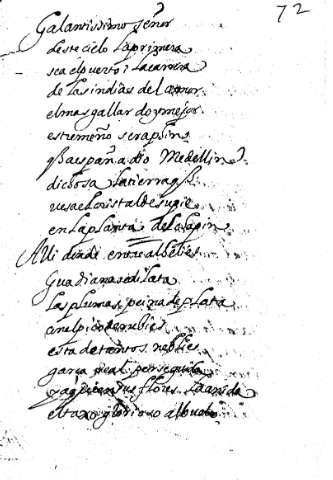 72
Galantissimo señor
deste cielo la primera
sea el puerto i la carrera
de las indias del amor
el mas gallardo y mejor
estremeño seraphin
q̃ a españa dio Medellin
dichosa la tierra q̃
vesa el cristal de su pie
en la planta de la
Alli donde entre albelies
Guadiana se dilata
las plumas peina de plata
an el pico de rubies
esta de tantos neblies
garça real perseguida
flores
el taxo glorioso al buelo